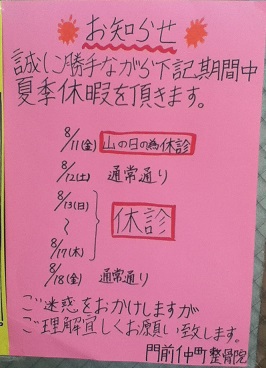 お知らせ
誠に勝手ながら下記期間中
夏季休暇を頂きます。
8/11(金) 山の日の為休診
8/12(土) 通常通り
8/13(日)
〜 休診
8/17(木)
8/18(金) 通常通り
ご迷惑をおかけしますが
ご理解宜しくお願い致します。
門前仲町整骨院